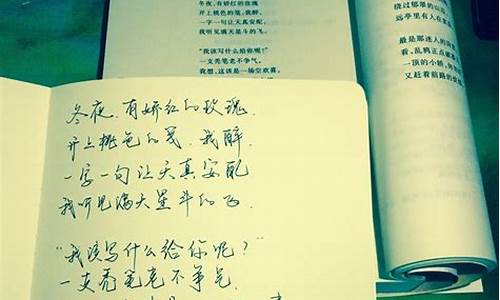 冬夜，有娇红的玫瑰
开上桃色的笺，我醉，
一字一句让天真安配
我听见满天星斗的飞。
“我该写什么给你呢？”
一支秃笔老不争气，
我想，这该是一场空欢喜。
绕过郁翠的山
远亭里有人在
最是那迷人的
看，乱鸦正点破
一顶的小轿，
又赶着前路的
冬夜，有娇红的玫瑰
开上桃色的笺，我醉
一字一句让天真安配
我听见满天星斗的飞
“我该写什么给你呢？”
一支秃笔老不争气